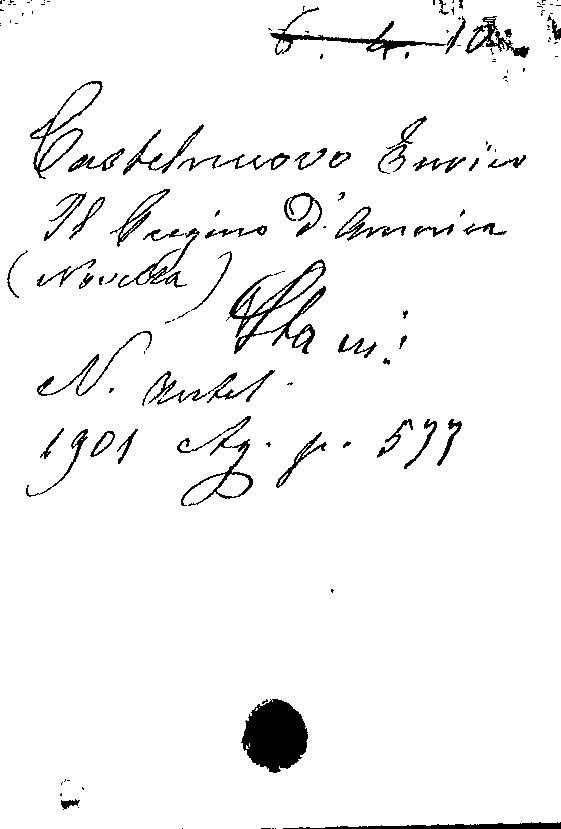 6. 4. 10
Castelnuovo Enrico
Il Cugino D'America
(Novella)
Sta in:
N. Antol.
1901 Ag. p. 577